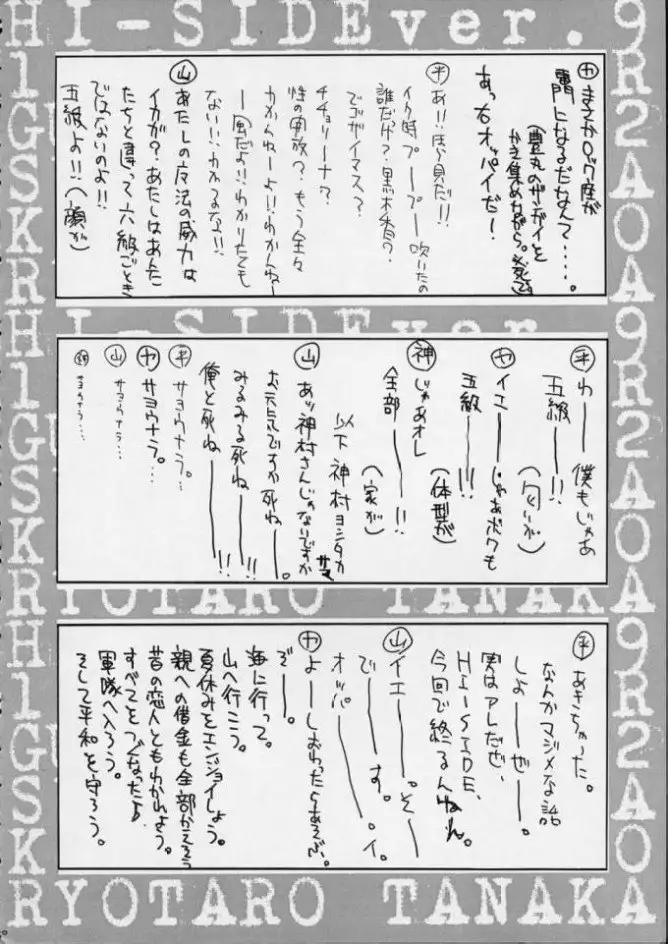 HI-SIDEver.
㋳まさかロック座が
門になるだなんて・・・・。
(豊丸のザンガイを
かき集めながら。死て)
あっ右オッパイだー!
㋭あ!!ほら見だ!!
イク時プープー吹いたの
誰だっけ?黒木香?
でゴザイマスっ?
チチョリーナ?
性の家族?もう全々
わかんねーよ!!わかんねー
ー風だよ!!わかりたくも
ない!!わかるな!!
㊤あたしの魔法の威力は
イカが?あたしはあんた
たちと違って六級ごとき
ではないのよ!!
五級よ!!(顔が)
HI-SIDEver.
㊥わーー僕もじゃあ
五級ーー!!
(匂いが)
ヤイエーーじゃあボクも
五級ーー!!!
(体型が)
神じゃあオレ
全部ーーー!!
(家が)
以下神村ヨシタカサマ
山あッ神村さんじゃないですか
お元気ですか死ねー。
みるみる死ねーー!!
俺と死ねーーー!!
ヤサヨウナラ。
平サヨウナラ。・・
山サヨウナラ・・・
神サヨウナラ・・・
RYOTARO TANAKA
平あきちゃった。
なんかマジメな話
しよーぜーー。
実はアレだぜ、
HI-SIDE、
今回で終るんだわ。
山イエーー。そー
でーーす。
オッパーーー。イ。
ヤよーしおわったらあそぶ
ぞー。
海に行って。
山へ行こう。
夏休みをエンジョイしよう。
親への借金も全部かえそう
昔の恋人ともわかれよう。
すべてをつぐなったら
軍隊へ入ろう。
そして平和を守ろう。
RYOTARO TANAKA